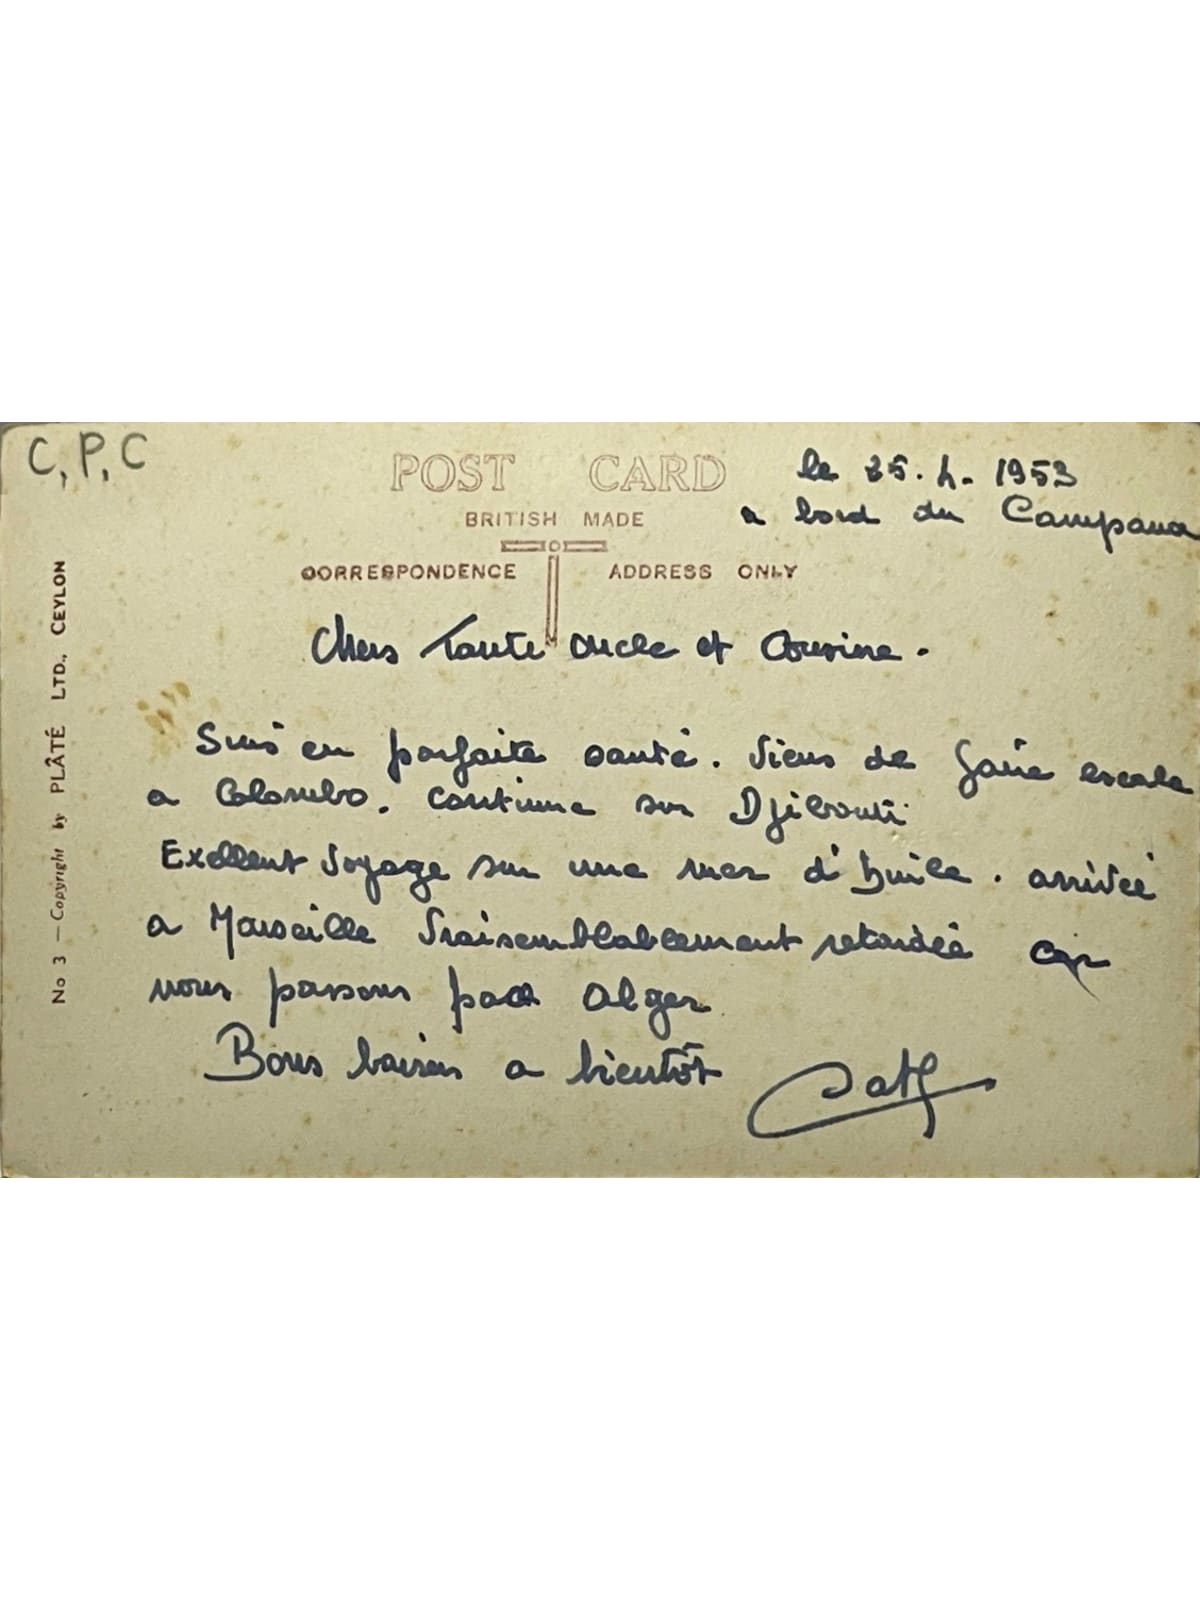 C, P, C
POST CARD
BRITISH MADE
CORRESPONDENCE ADDRESS ONLY
le 25. 4. 1953
a bord du Campana
Chers Tante Oncle et Cousine.
Suis en parfaite santé. Viens de faire escale
a Colombo. Continue sur Djibouti
Exellent Voyage sur une mer d'huile. arrivée
a Marseille Vraisemblablement retardée car
nous passons par Alger
Bons baisers a bientôt
No 3 — Copyright by PLÂTÉ LTD., CEYLON